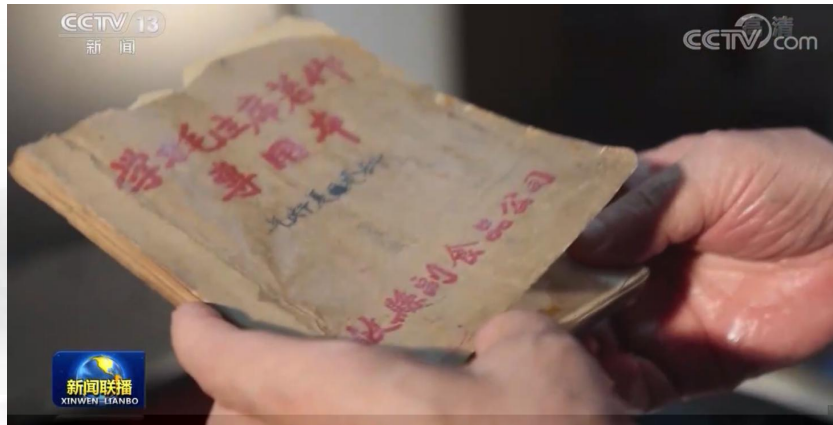 CCTV 13
新闻
高清
CCTV.com
学习毛主席著作
专用本
副食品公司
新闻联播
XINWEN-LIANBO